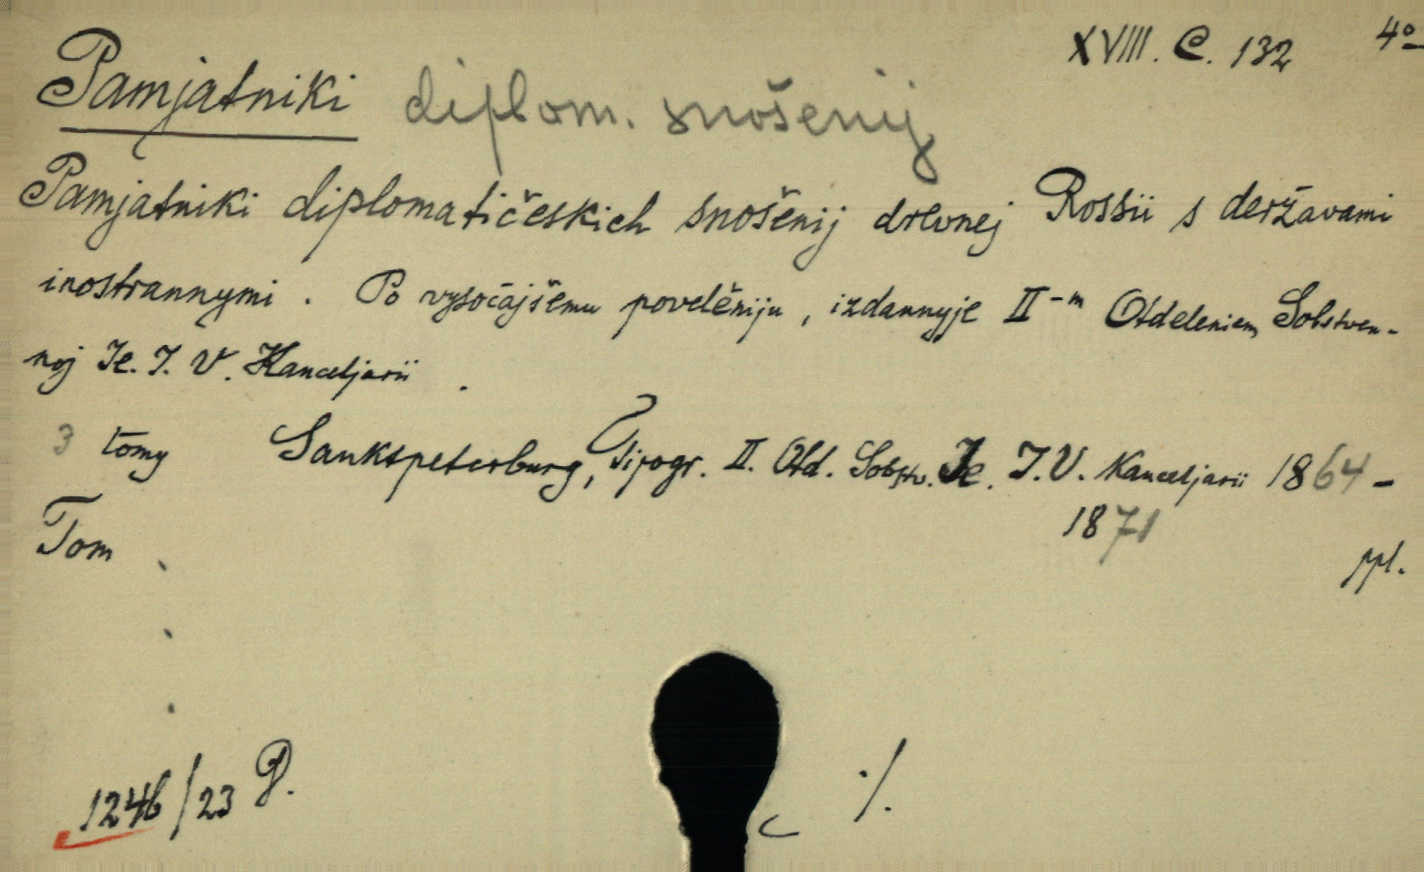 XVIII. C. 132 4º
Pamjatniki diplom. snošenij
Pamjatniki diplomatičeskich snošenij drevnej Rossii s deržavami
inostrannymi. Po vysočajšemu povelěniju, izdannyje II-m Otdeleniem Sobstven-
noj Je. I. V. Kanceljarii.
3 tomy Sanktpeterburg, Tipogr. II. Otd. Sobstv. Je. I. V. Kanceljarii 1864-
1871
Tom
ppl.
1246/23 P.
./.